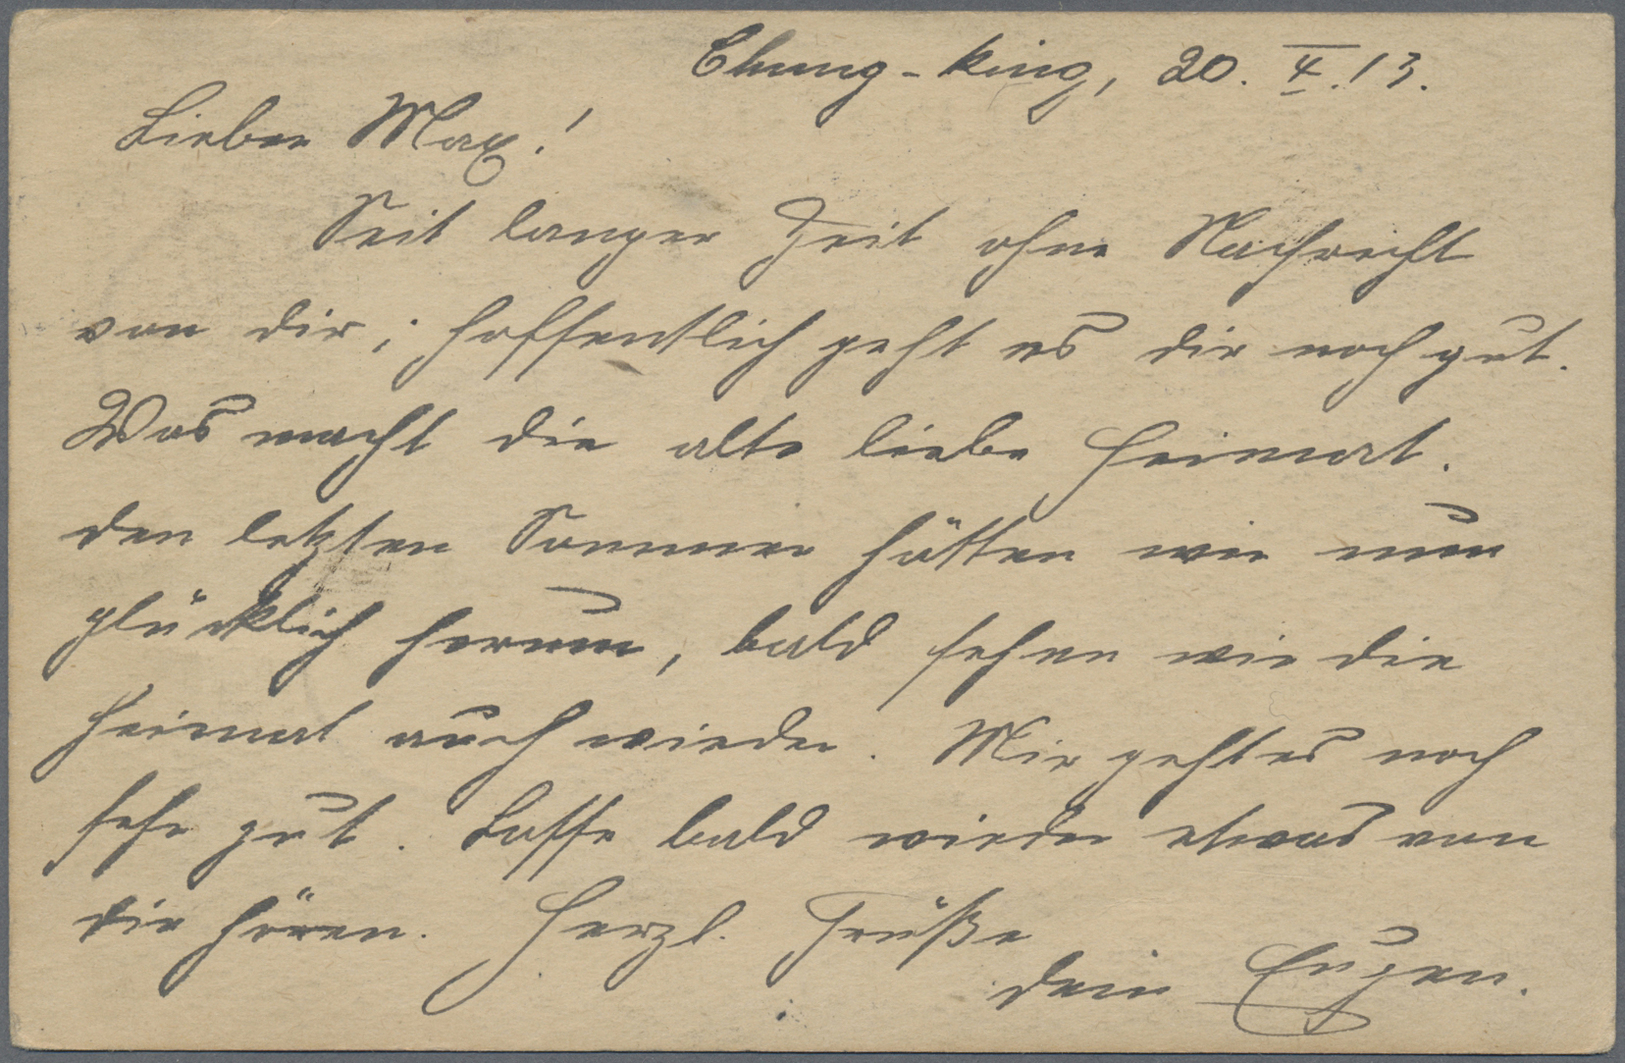 Chung-king, 20. X. 13.
Lieber Max!
Seit langer Zeit ohne Nachricht
von dir; hoffentlich geht es dir noch gut.
Was macht die alte liebe Heimat.
den letzten Sommer hätten wir nun
glücklich herum, bald sehen wir die
Heimat auch wieder. Mir geht es noch
sehr gut. Lasse bald wieder etwas von
dir hören. Herzl. Grüße
dein Eugen.